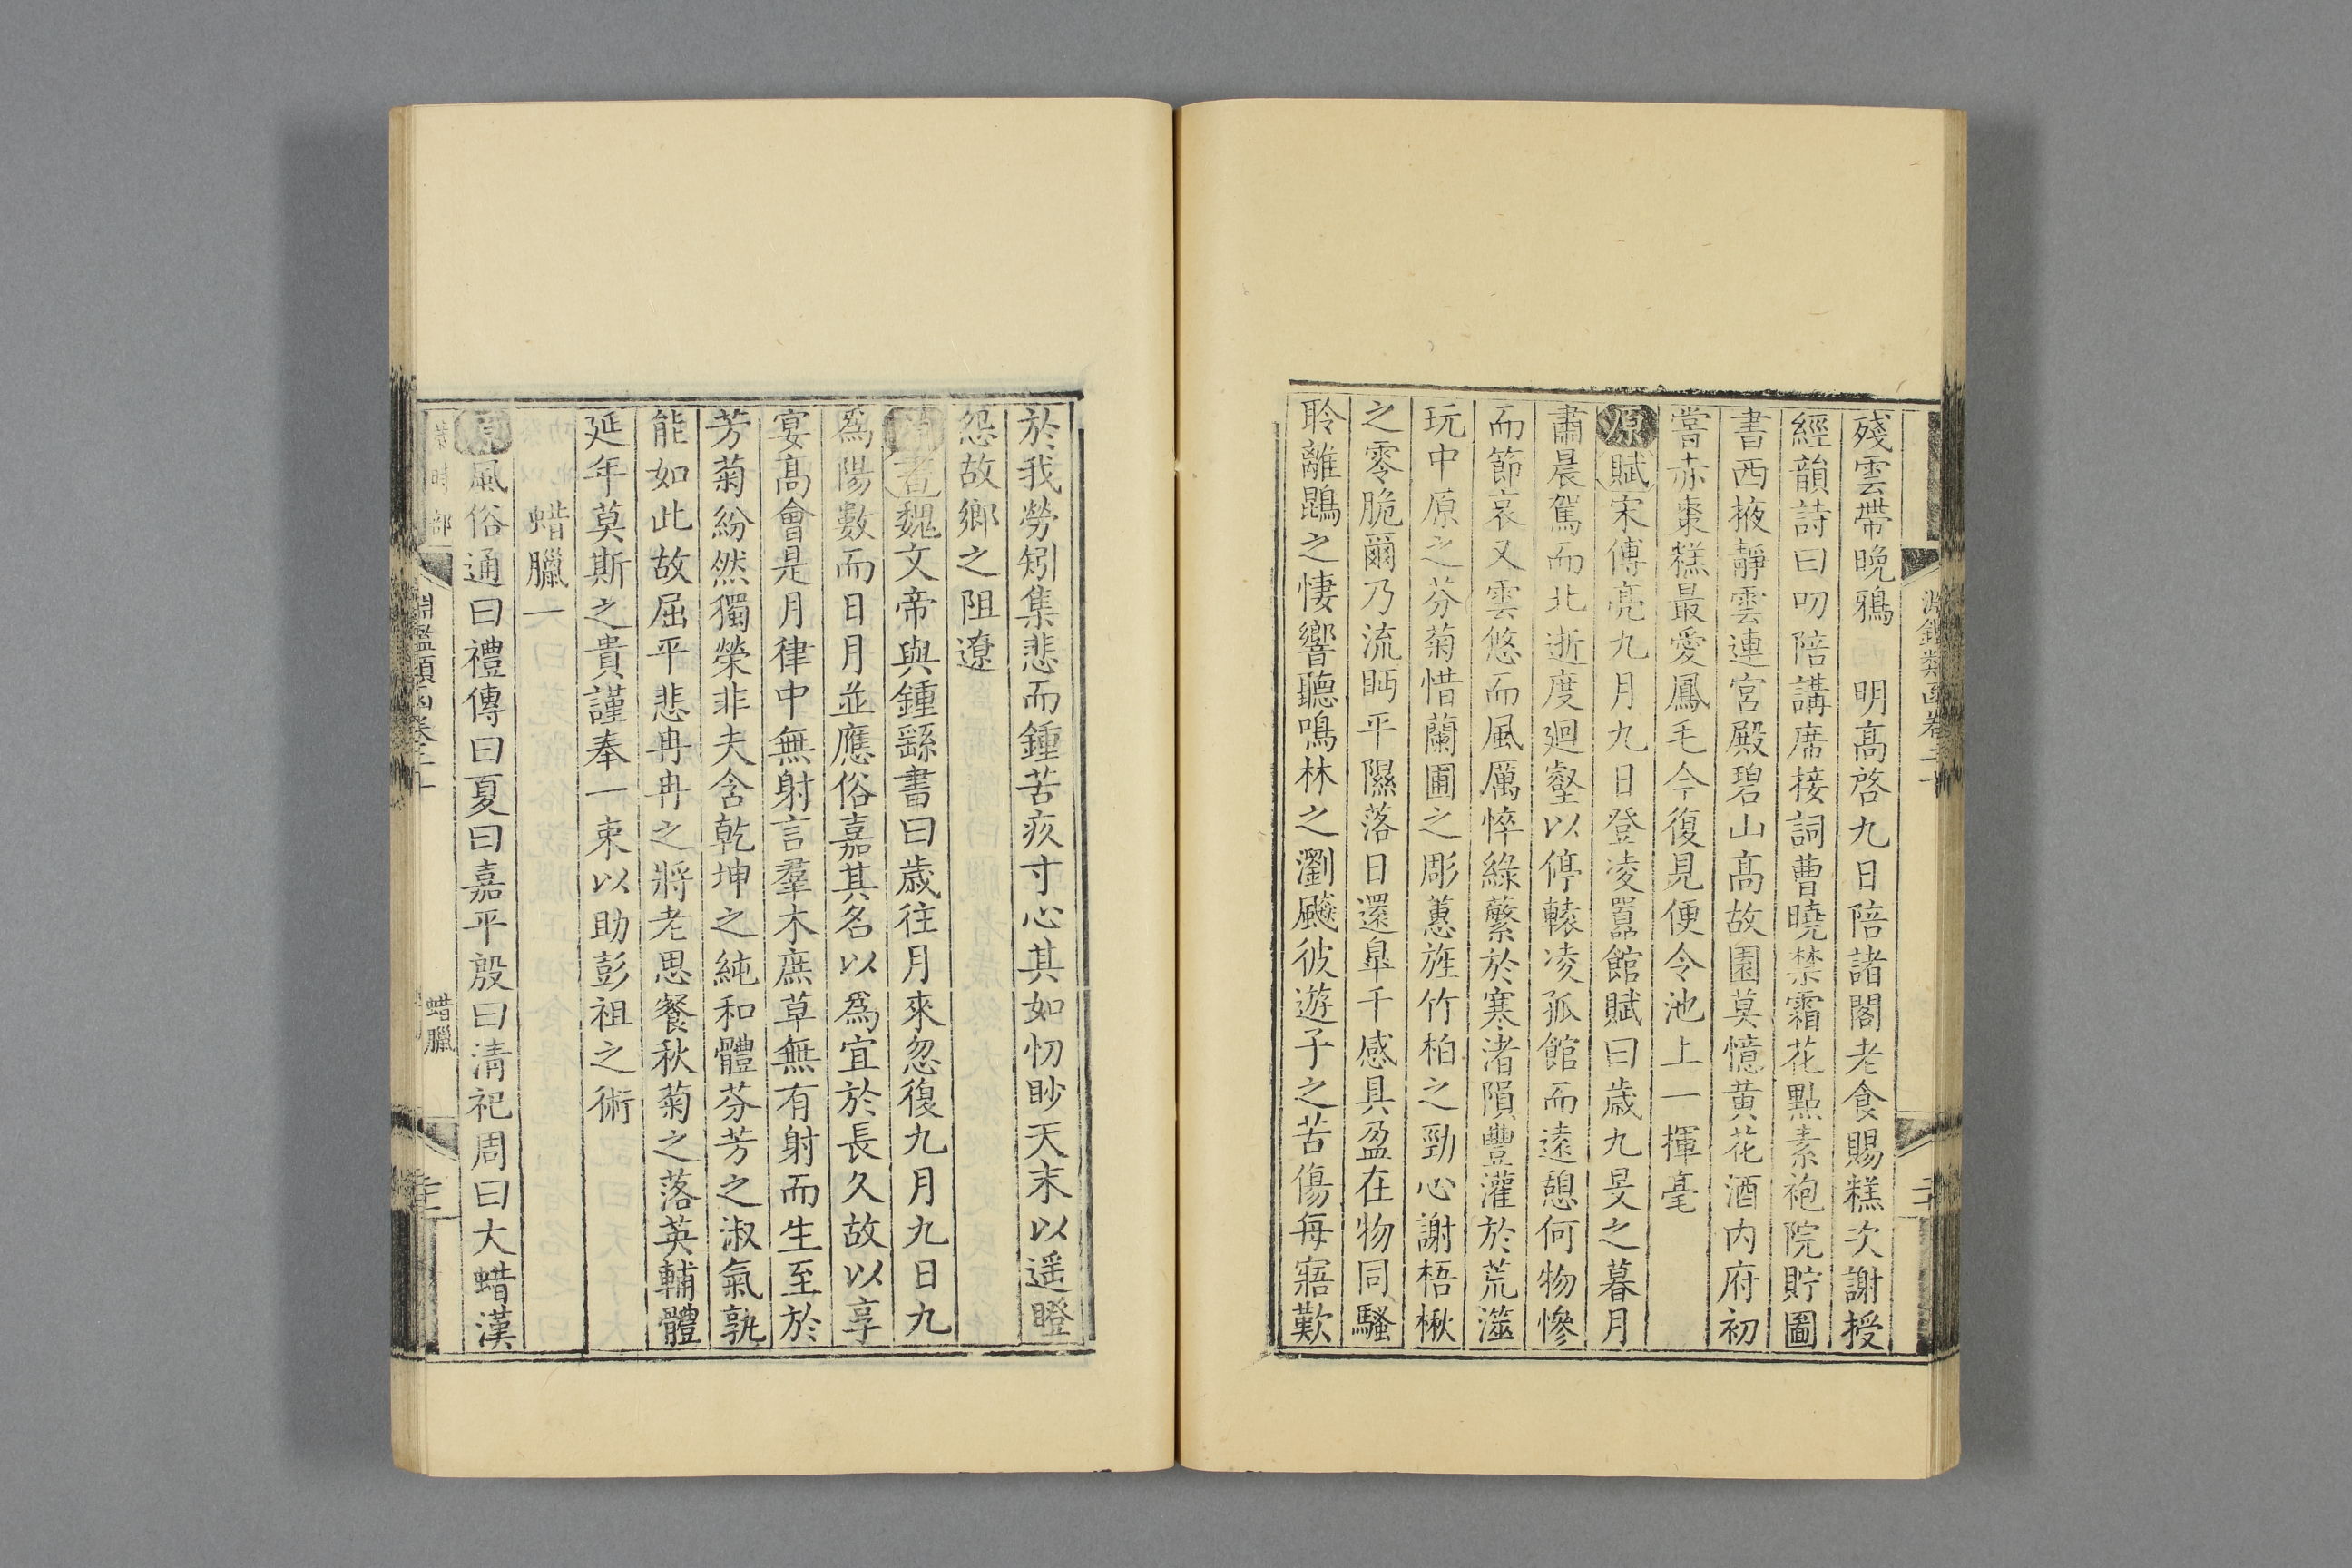 殘雲帶晚鴉 明高啓九日陪諸閣老食賜糕次謝授
經韻詩曰叨陪講席接詞曹曉禁霜花點素袍院貯圖
書西掖靜雲連宮殿碧山高故園莫憶黃花酒内府初
嘗赤棗糕最愛鳳毛今復見便令池上一揮毫
原賦宋傅亮九月九日登凌嚻館賦曰歲九旻之暮月
肅晨駕而北逝度廻壑以停轅凌孤館而遠憩何物慘
而節哀又雲悠而風厲悴綠蘩於寒渚隕豐灌於荒澨
玩中原之芬菊惜蘭圃之彫蕙旌竹柏之勁心謝梧楸
之零脆爾乃流眄平隰落日還臯千感具盈在物同騷
聆離鵾之悽響聽鳴林之瀏飈彼遊子之苦傷每寤歎
於我勞矧集悲而鍾苦疚寸心其如忉眇天末以遥瞪
怨故鄉之阻遼
原書魏文帝與鍾繇書曰歲往月來忽復九月九日九
爲陽數而日月並應俗嘉其名以爲宜於長久故以享
宴高會是月律中無射言羣木庶草無有射而生至於
芳菊紛然獨榮非夫含乾坤之純和體芬芳之淑氣孰
能如此故屈平悲冉冉之將老思餐秋菊之落英輔體
延年莫斯之貴謹奉一束以助彭祖之術
蜡臘一
原風俗通曰禮傳曰夏曰嘉平殷曰清祀周曰大蜡漢
歲時部 淵鑑類函卷二十 蜡臘